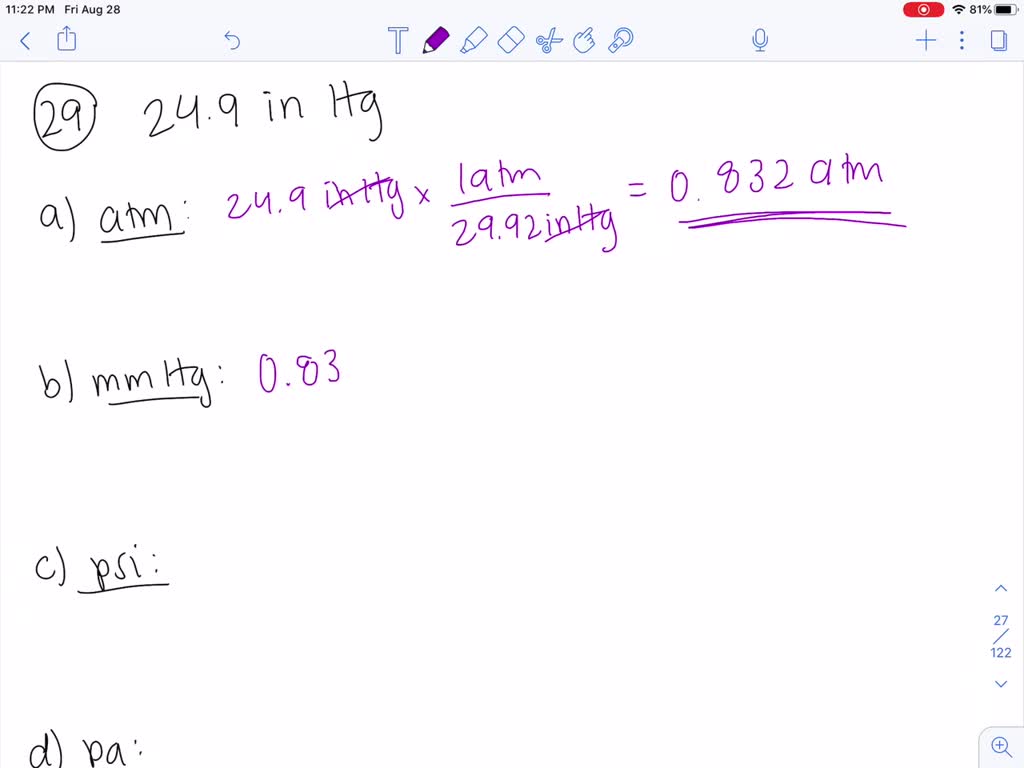 11:22 PM Fri Aug 28 81%
29 24.9 in Hg
a) atm: 24.9 in Hg x 1 atm / 29.92 in Hg = 0.832 atm
b) mm Hg: 0.83
c) psi:
27 / 122
d) pa: